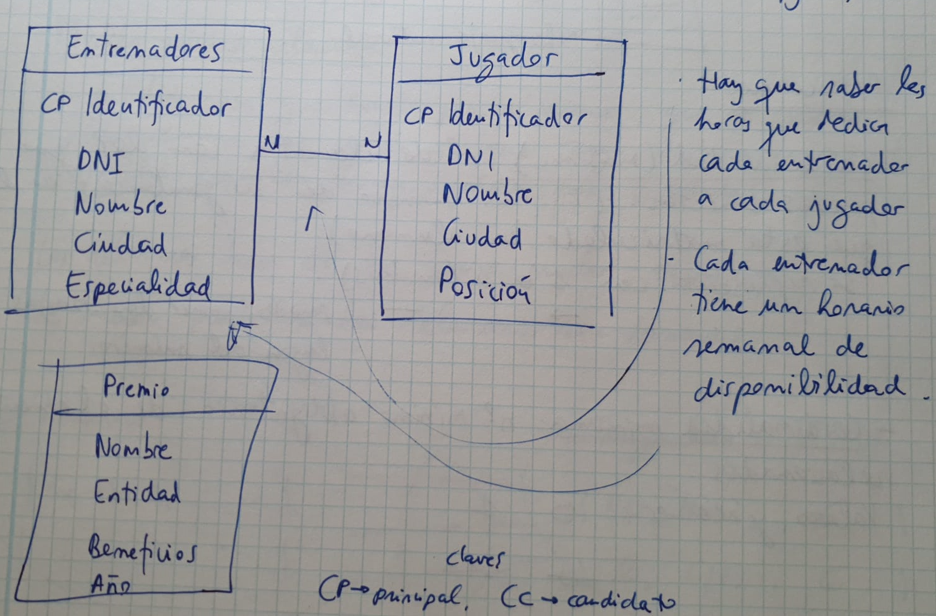 Entrenadores
CP Identificador
DNI
Nombre
Ciudad
Especialidad
N
N
Jugador
CP Identificador
DNI
Nombre
Ciudad
Posición
· Hay que saber les
horas que dedica
cada entrenador
a cada jugador
- Cada entrenador
tiene un horario
semanal de
disponibilidad.
Premio
Nombre
Entidad
Beneficios
Año
claves
CP→principal, CC→candidato